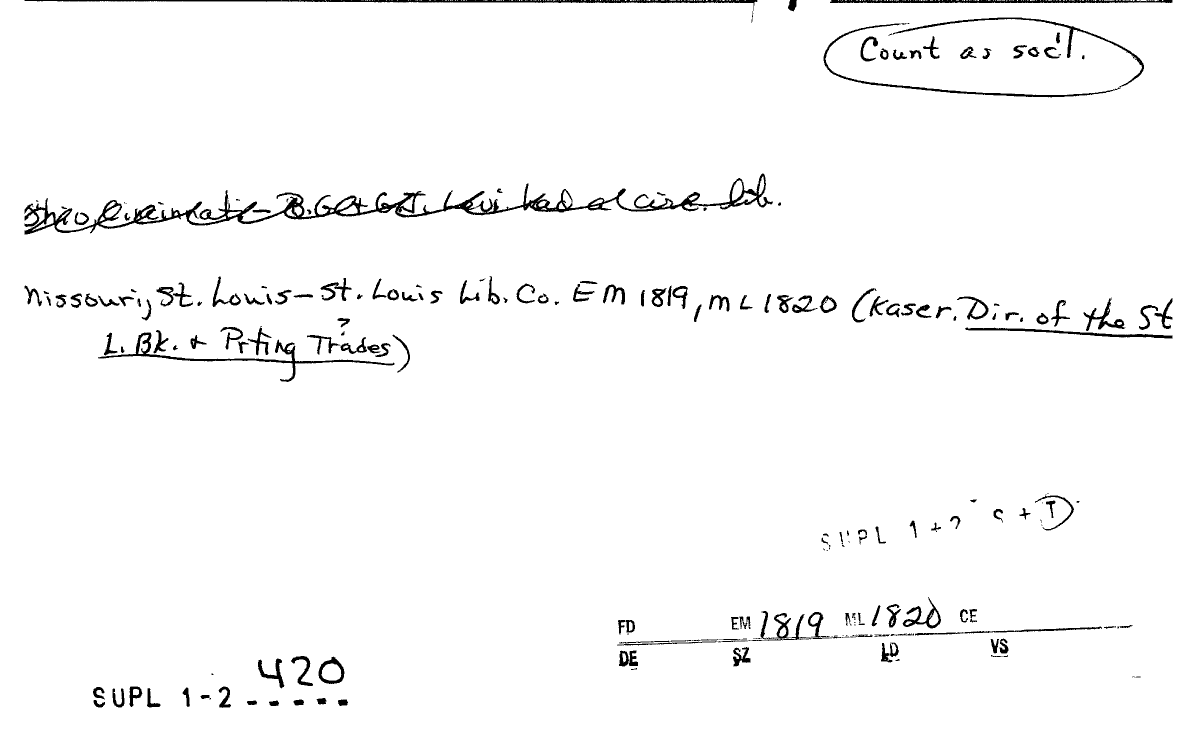 Count as soc'l.
Ohio, Cincinnati – B.G. + G.T. Levi had a circ. lib.
Missouri, St. Louis – St. Louis Lib. Co. EM 1819, ML 1820 (Kaser. Dir. of the St
?
L. Bk. + Prting Trades)
SUPL 1+2 S + T
FD EM 1819 ML 1820 CE
DE SZ LD VS
420
SUPL 1-2 - - - - -